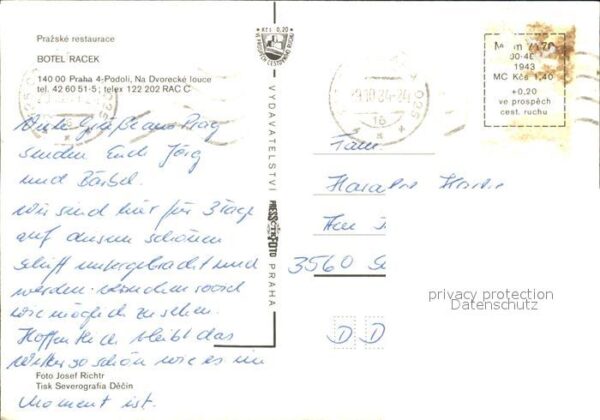 Pražské restaurace
BOTEL RACEK
140 00 Praha 4-Podolí, Na Dvorecké louce
tel. 42 60 51-5; telex 122 202 RAC C
Viele Grüße aus Prag
senden Euch Jörg
und Bärbel.
Wir sind hier für 3 Tage
auf diesem schönen
Schiff untergebracht und
werden versuchen soviel
wie möglich zu sehen.
Hoffentlich bleibt das
Wetter so schön wie es im
Moment ist.
Foto Josef Richtr
Tisk Severografia Děčín
Kčs 0,20
VE PROSPĚCH CESTOVNÍHO RUCHU
VYDAVATELSTVÍ
PRESSFOTO
ČTK
PRAHA
-9.10.84-24
16
025
1943
MC Kčs 1,40
+0,20
ve prospěch
cest. ruchu
Fam.
3560
D D
privacy protection
Datenschutz